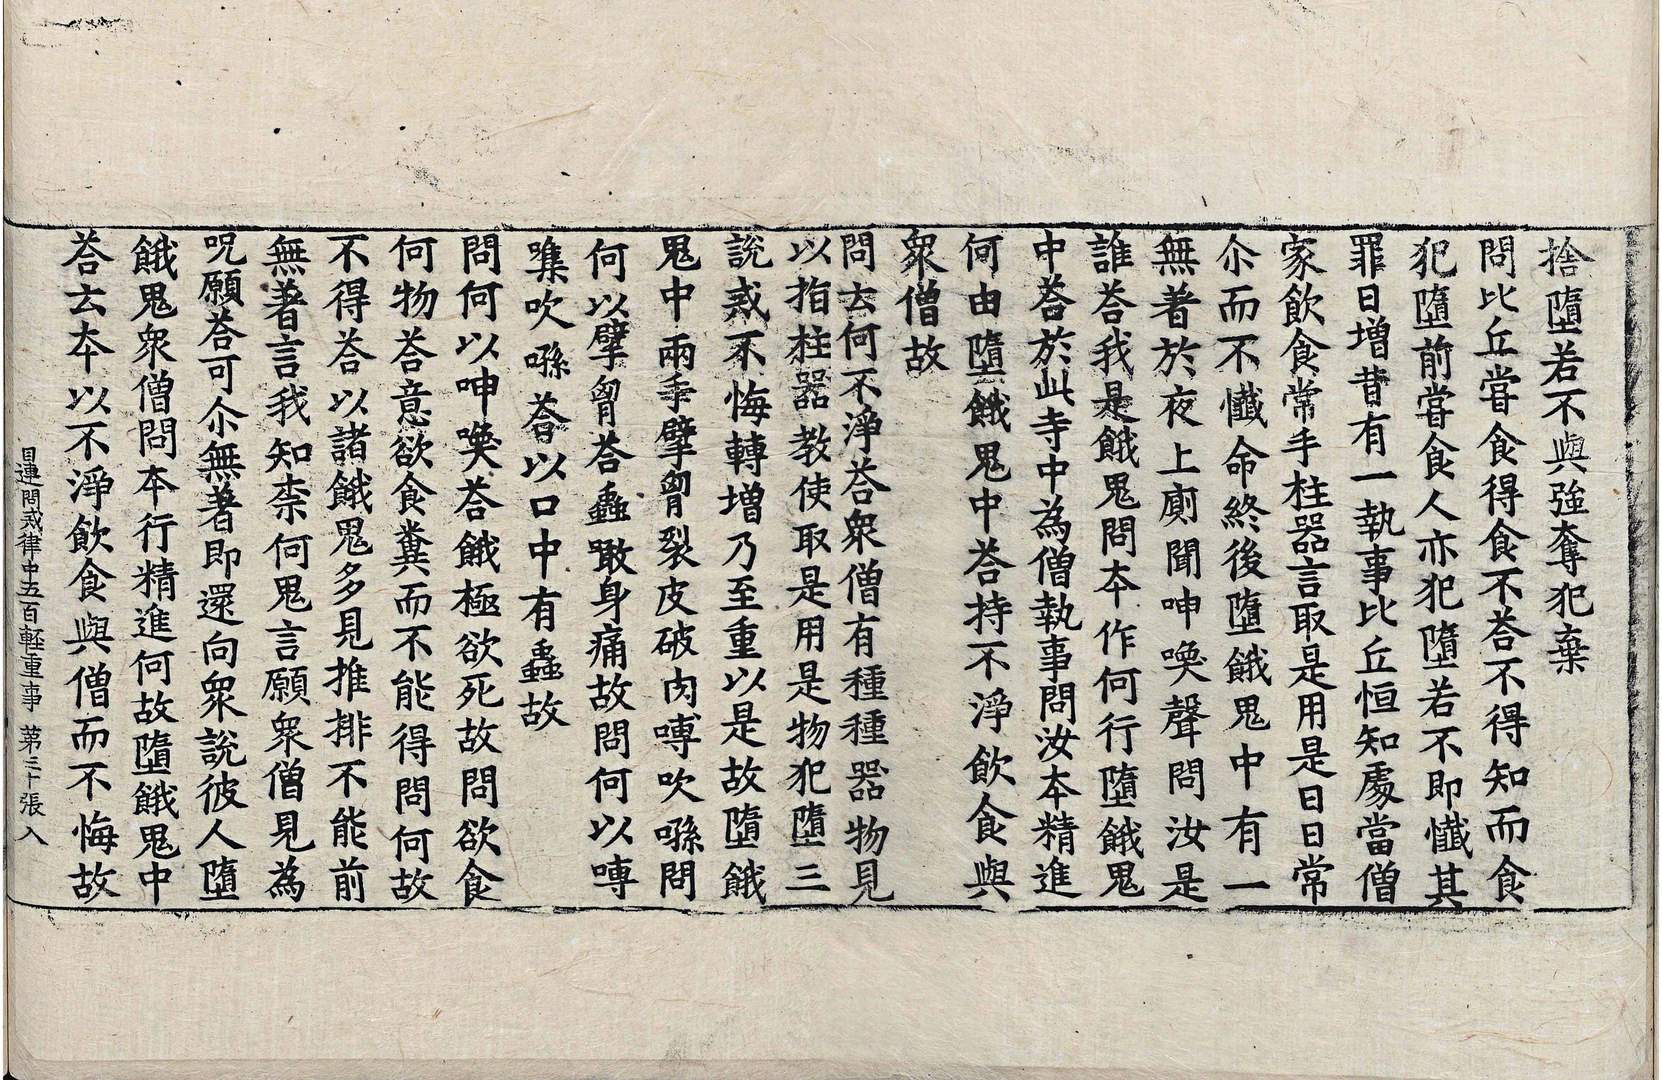 捨墮若不與強奪犯棄
問比丘嘗食得食不荅不得知而食
犯墮前嘗食人亦犯墮若不即懺其
罪日增昔有一執事比丘恒知處當僧
家飲食常手柱器言取是用是日日常
尒而不懺命終後墮餓鬼中有一
無著於夜上廁聞呻喚聲問汝是
誰荅我是餓鬼問本作何行墮餓鬼
中荅於此寺中為僧執事問汝本精進
何由墮餓鬼中荅持不淨飲食與
衆僧故
問去何不淨荅衆僧有種種器物見
以指柱器教使取是用是物犯墮三
說戒不悔轉增乃至重以是故墮餓
鬼中兩手擘𦚾裂皮破肉嚩吹喺問
何以擘𦚾荅蟲噉身痛故問何以嚩
嘊吹喺荅以口中有蟲故
問何以呻喚荅餓極欲死故問欲食
何物荅意欲食糞而不能得問何故
不得荅以諸餓鬼多見推排不能前
無著言我知柰何鬼言願衆僧見為
呪願荅可尒無著即還向衆說彼人墮
餓鬼衆僧問本行精進何故墮餓鬼中
荅玄本以不淨飲食與僧而不悔故
目連問戒律中五百輕重事 第三十張 入